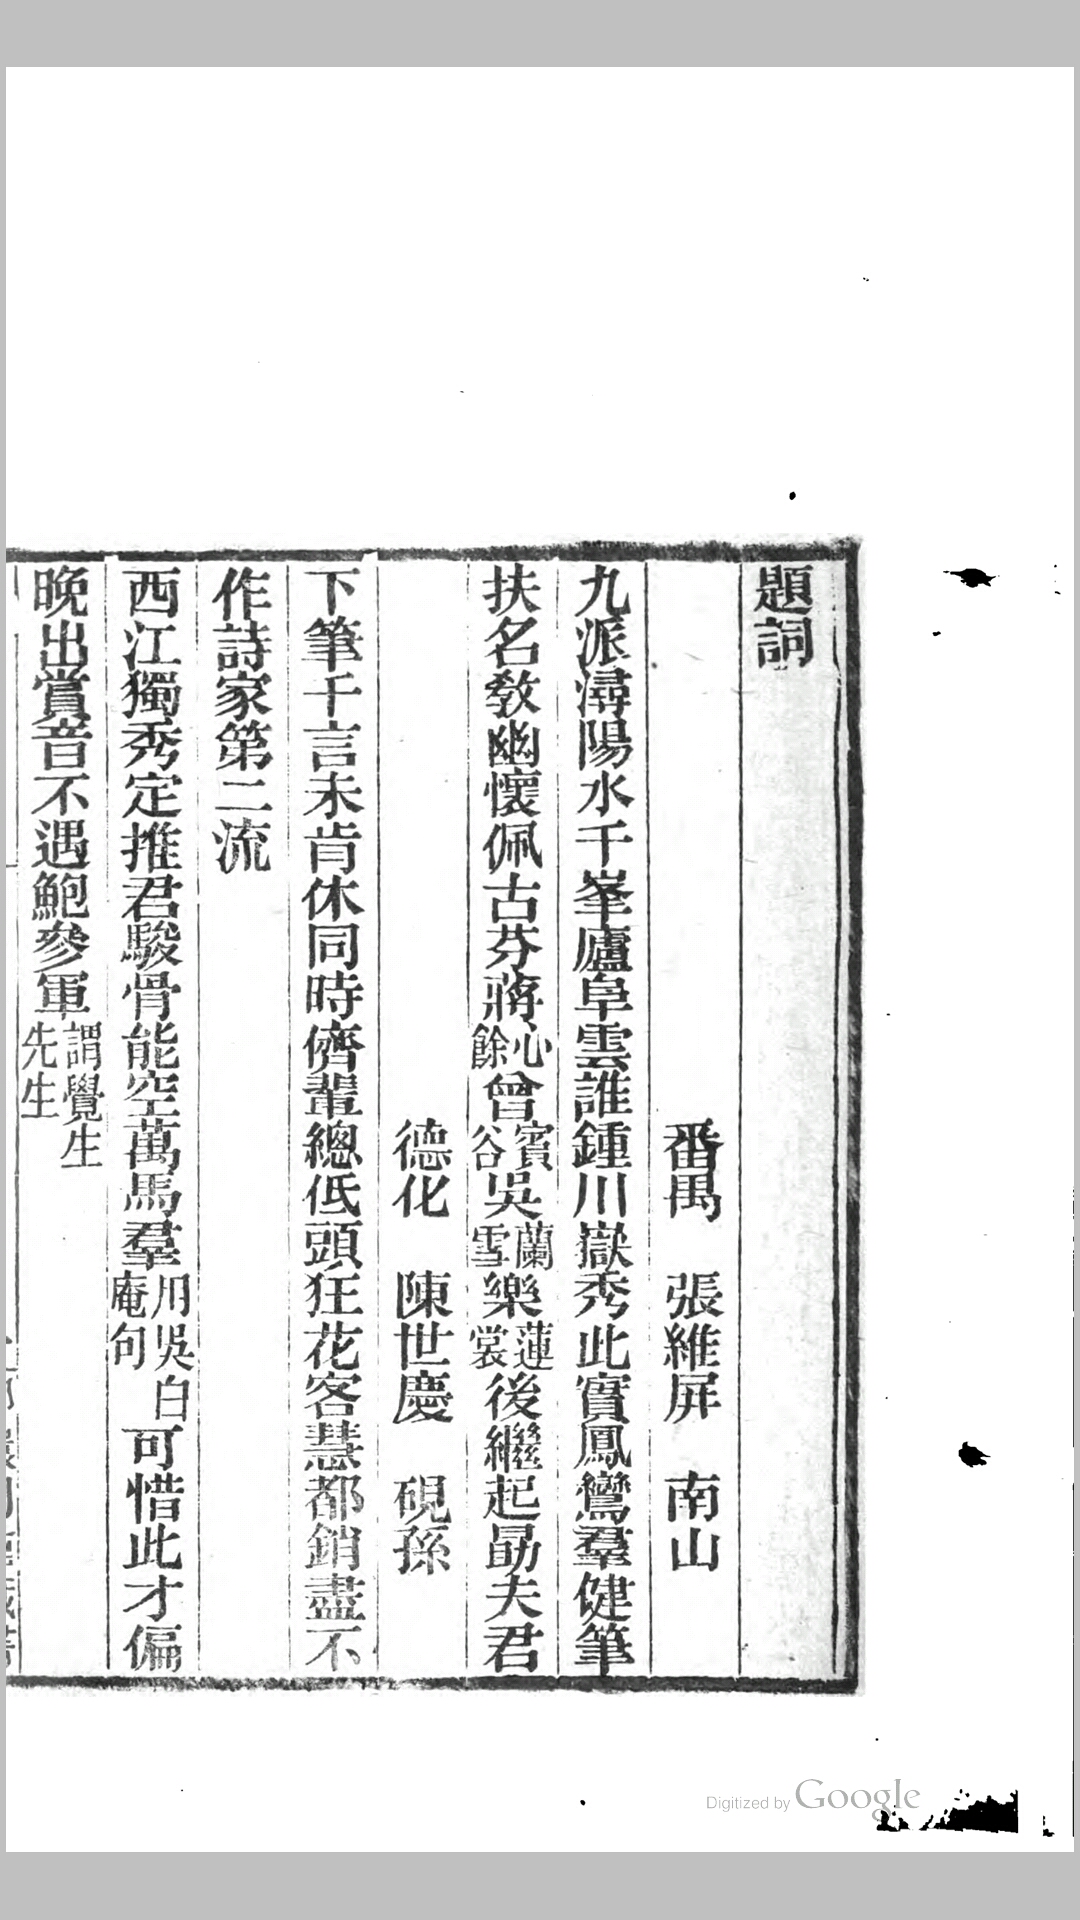 題詞
番禺　張維屏　南山
九派潯陽水千峯廬阜雲誰鍾川嶽秀此實鳳鸞羣健筆
扶名敎幽懷佩古芬蔣心餘曾賓谷吳蘭雪樂蓮裳後繼起勗夫君
德化　陳世慶　硯孫
下筆千言未肯休同時儕輩總低頭狂花客慧都銷盡不
作詩家第二流
西江獨秀定推君駿骨能空萬馬羣用吳白庵句可惜此才偏
晚出賞音不遇鮑參軍謂覺生先生
Digitized by Google